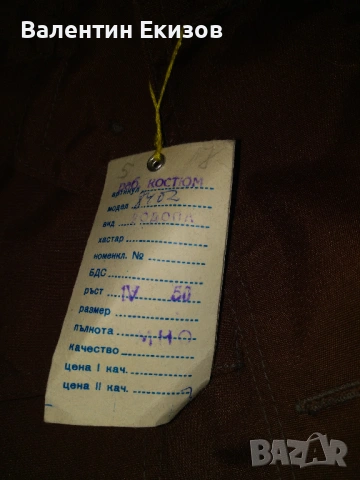 Валентин Екизов
5 8
раб. костюм
артикул
модел 8402
вид РОДОПА
хастар
номенкл. №
БДС
ръст IV 52
размер
пълкота
качество
цена I кач.
цена II кач.
BAZAR